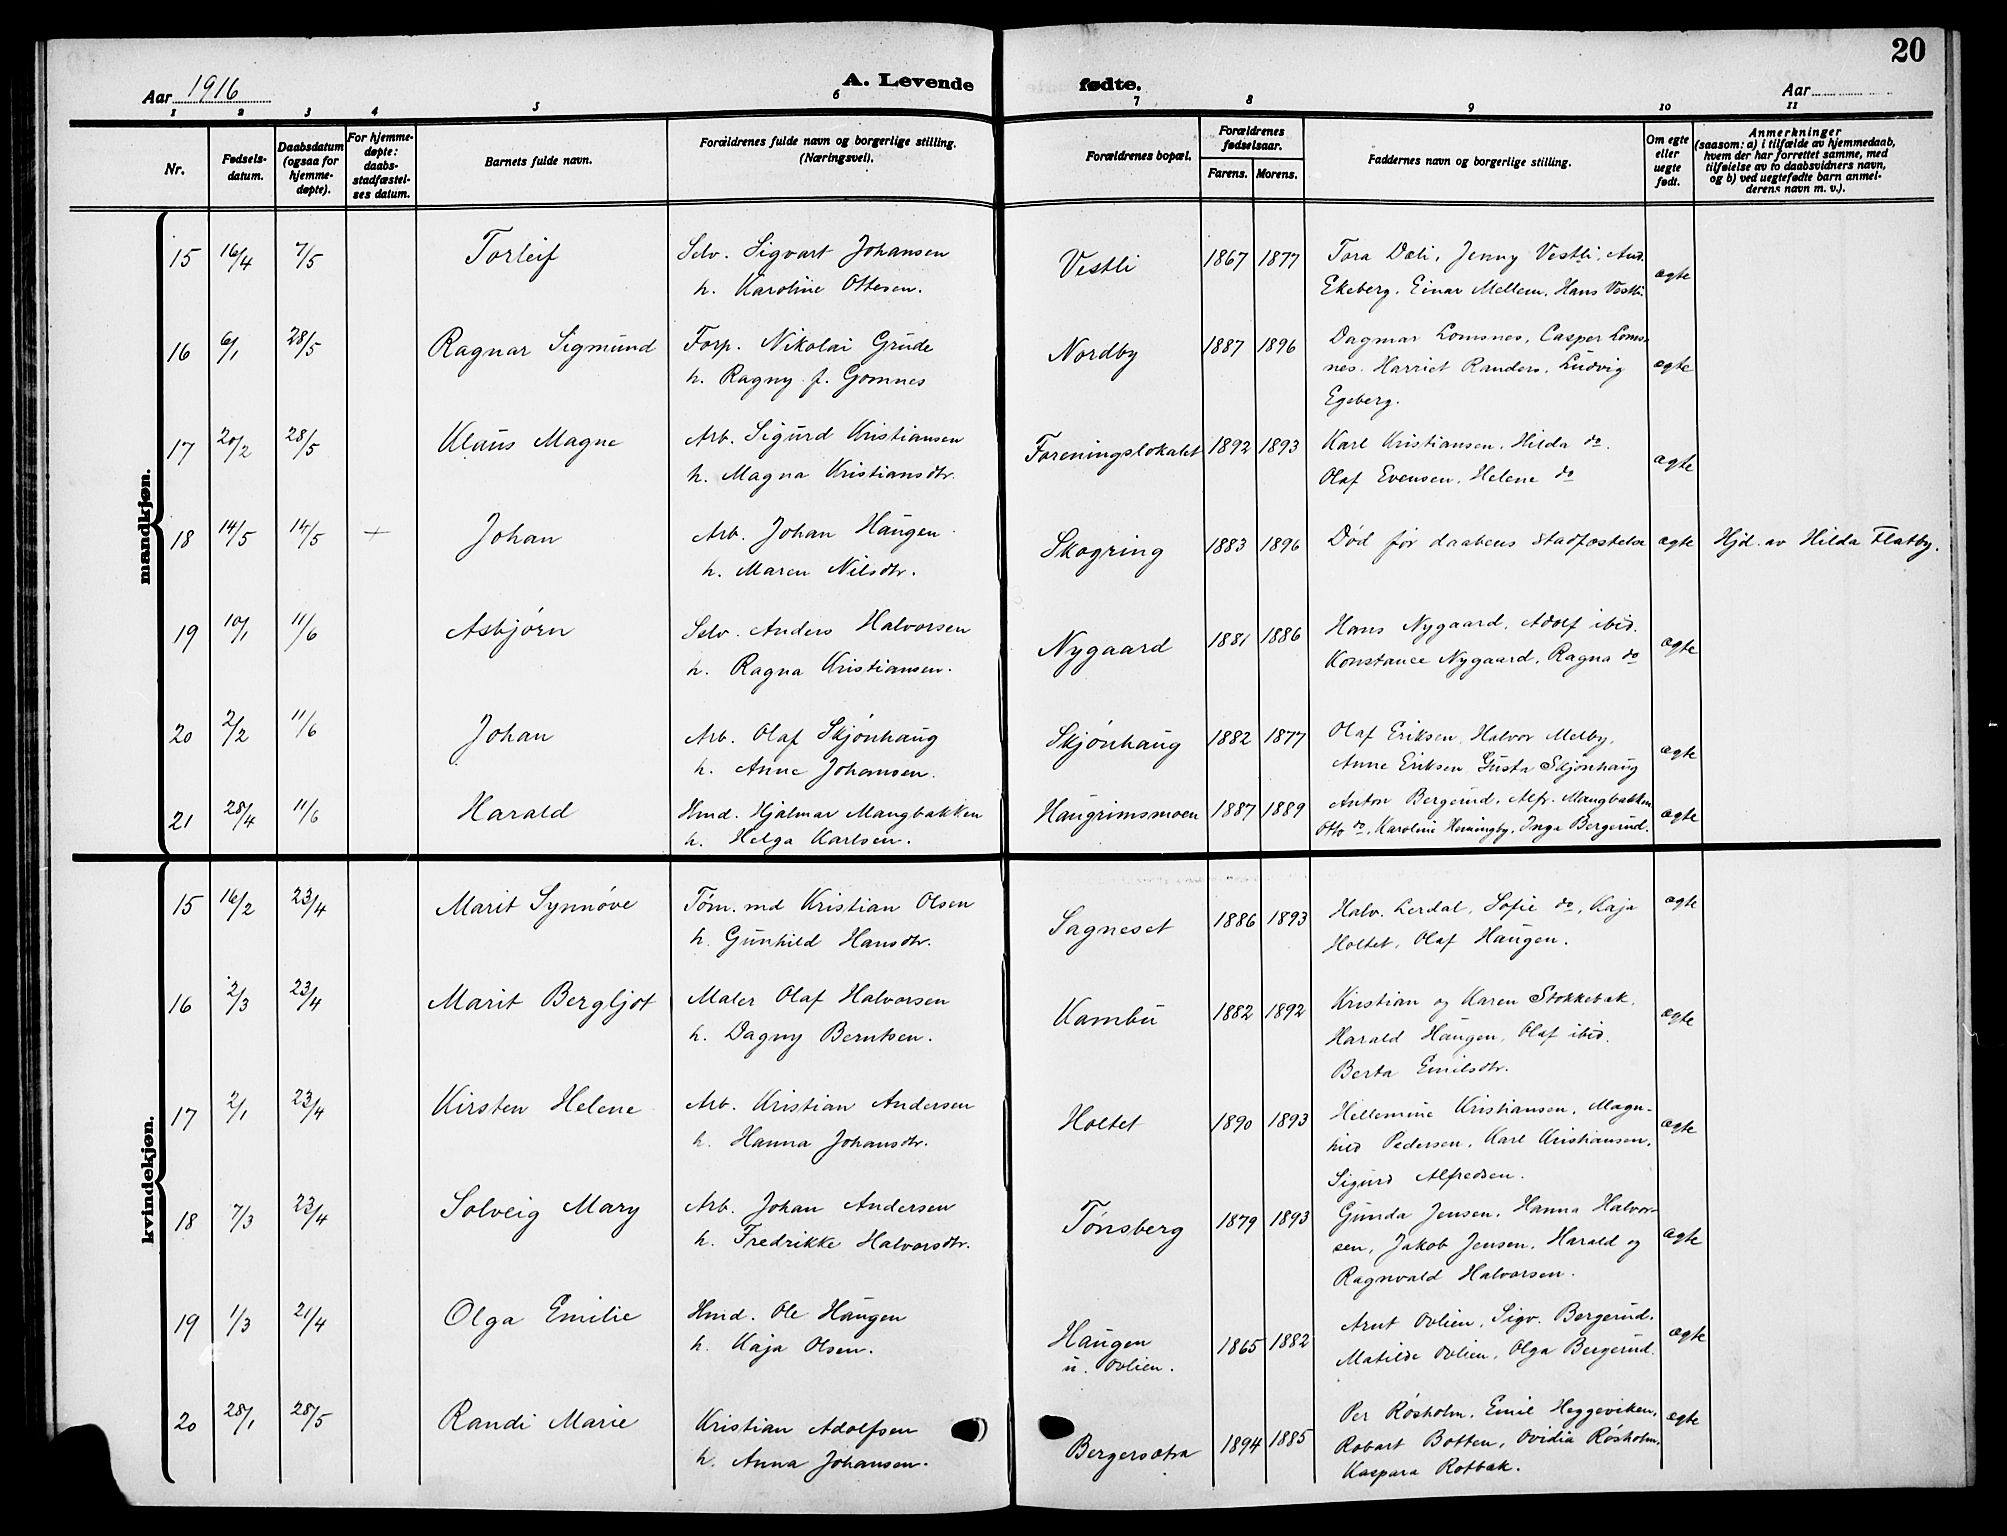 20
Aar 1916 A. Levende fødte. Aar
1 2 3 4 5 6 7 8 9 10 11
Nr.
Fødsels-
datum.
Daabsdatum
(ogsaa for
hjemme-
døpte).
For hjemme-
døpte:
daabs-
stadfæstel-
ses datum.
Barnets fulde navn.
Forældrenes fulde navn og borgerlige stilling.
(Næringsvei).
Forældrenes bopæl.
Forældrenes
fødselsaar.
Farens. Morens.
Faddernes navn og borgerlige stilling.
Om egte
eller
uegte
født.
Anmerkninger
(saasom: a) i tilfælde av hjemmedaab,
hvem der har forrettet samme, med
tilføielse av to daabsvidners navn,
og b) ved uegtefødte barn anmel-
derens navn m. v.).
mandkjøn.
15 16/4 7/5 Torleif Selv. Sigvart Johansen Vestli 1867 1877 Tora Dæli, Jenny Vestli, And. ægte
h. Karoline Ottesen. Ekeberg, Einar Mellem, Hans Vestli.
16 6/1 28/5 Ragnar Sigmund Forp. Nikolai Grude Nordby 1887 1896 Dagmar Lomsnes, Casper Loms- ægte
h. Ragny f. Gomnes nes. Harriet Randers, Ludvig
Egeberg.
17 20/2 28/5 Klaus Magne Arb. Sigurd Kristiansen Foreningslokalet 1892 1893 Karl Kristiansen, Hilda do. ægte
h. Magna Kristiansdtr. Olaf Evensen, Helene do
18 14/5 14/5 + Johan Arb. Johan Haugen Skogring 1883 1896 Død før daabens stadfæstelse ægte Hjd. av Hilda Flatby.
h. Maren Nilsdtr.
19 10/1 11/6 Asbjørn Selv. Anders Halvorsen Nygaard 1881 1886 Hans Nygaard, Adolf ibid. ægte
h. Ragna Kristiansen. Konstance Nygaard, Ragna do
20 2/2 11/6 Johan Arb. Olaf Skjønhaug Skjønhaug 1882 1877 Olaf Eriksen, Halvor Melby, ægte
h. Anne Johansen. Anne Eriksen, Gusta Skjønhaug
21 28/4 11/6 Harald Hmd. Hjalmar Mangbakken Haugrimsmoen 1887 1889 Anton Bergerud, Alfr. Mangbakken ægte
h. Helga Karlsen. Otto do, Karoline Henningby, Inga Bergerud.
kvindekjøn.
15 16/2 23/4 Marit Synnøve Tøm.md Kristian Olsen Sagneset 1886 1893 Halv. Lerdal, Sofie do, Kaja ægte
h. Gunhild Hansdtr. Holtet, Olaf Haugen.
16 2/3 23/4 Marit Bergljot Maler Olaf Halvorsen Kambu 1882 1892 Kristian og Karen Stokkebæk, ægte
h. Dagny Berntsen. Harald Haugen, Olaf ibid.
Berta Emilsdtr.
17 2/1 23/4 Kirsten Helene Arb. Kristian Andersen Holtet 1890 1893 Hellemine Kristiansen, Magn- ægte
h. Hanna Johansdtr. hild Pedersen, Karl Kristiansen,
Sigurd Alfredsen.
18 7/3 23/4 Solveig Mary Arb. Johan Andersen Tønsberg 1879 1893 Gunda Jensen, Hanna Halvor- ægte
h. Fredrikke Halvorsdtr. sen, Jakob Jensen, Harald og
Ragnvald Halvorsen.
19 1/3 21/4 Olga Emilie Hmd. Ole Haugen Haugen 1865 1882 Arnt Ovlien, Sigv. Bergerud, ægte
h. Kaja Olsen. u. Ovlien. Matilde Ovlien, Olga Bergerud.
20 28/1 28/5 Randi Marie Kristian Adolfsen Bergersætra 1894 1885 Per Røsholm, Emil Heggeviken, ægte
h. Anna Johansen. Robart Botten, Ovidia Røsholm,
Kaspara Rotbæk.